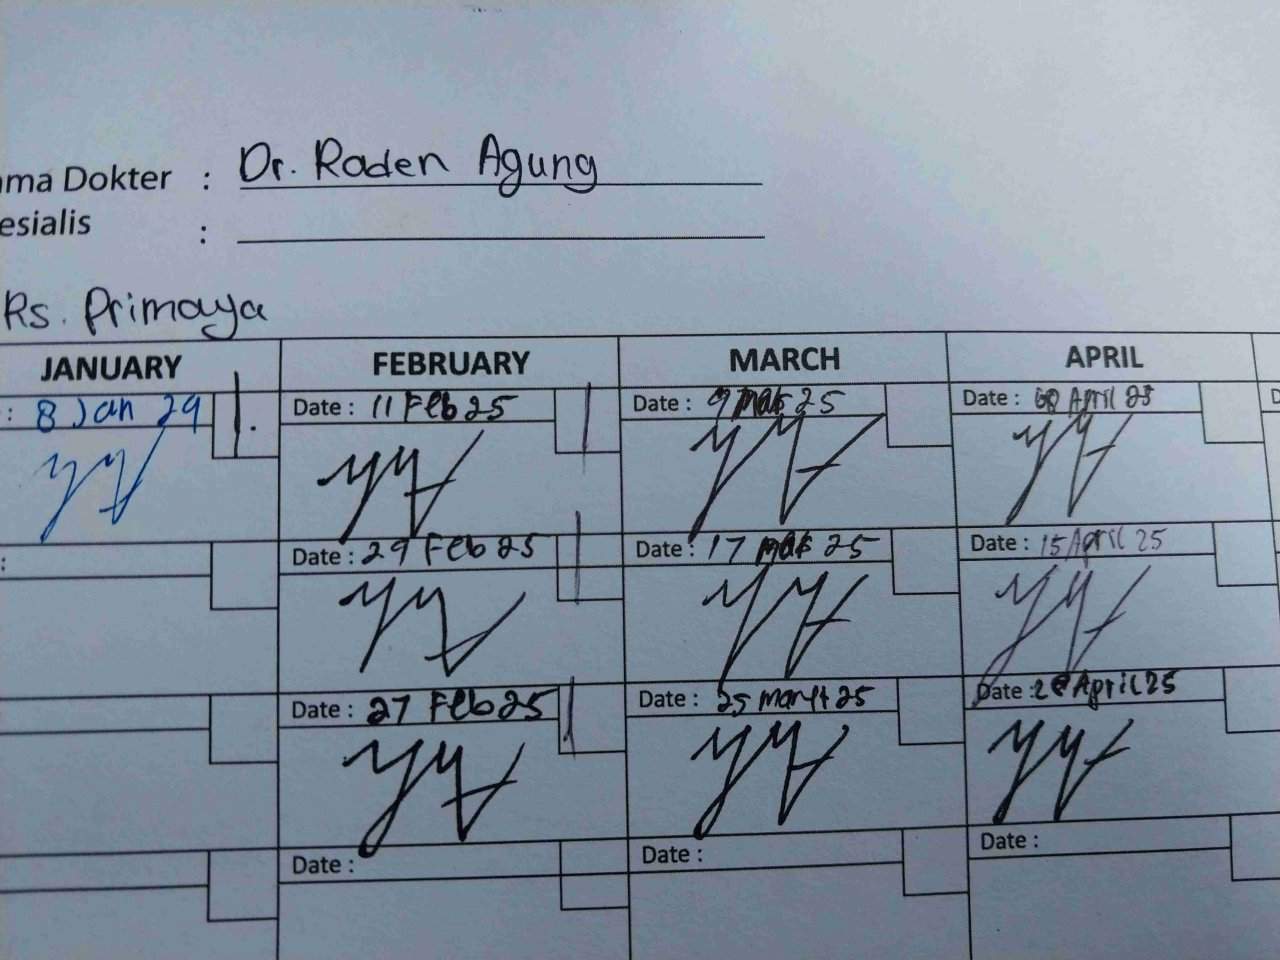 ama Dokter : Dr. Raden Agung
esialis :
Rs. Primaya
JANUARY FEBRUARY MARCH APRIL
: 8 Jan 29 Date : 11 Feb 25 Date : 9 Mar 25 Date : April 25
: Date : 29 Feb 25 Date : 17 Mar 25 Date : 15 April 25
Date : 27 Feb 25 Date : 25 Date : April 25
Date : Date : Date :